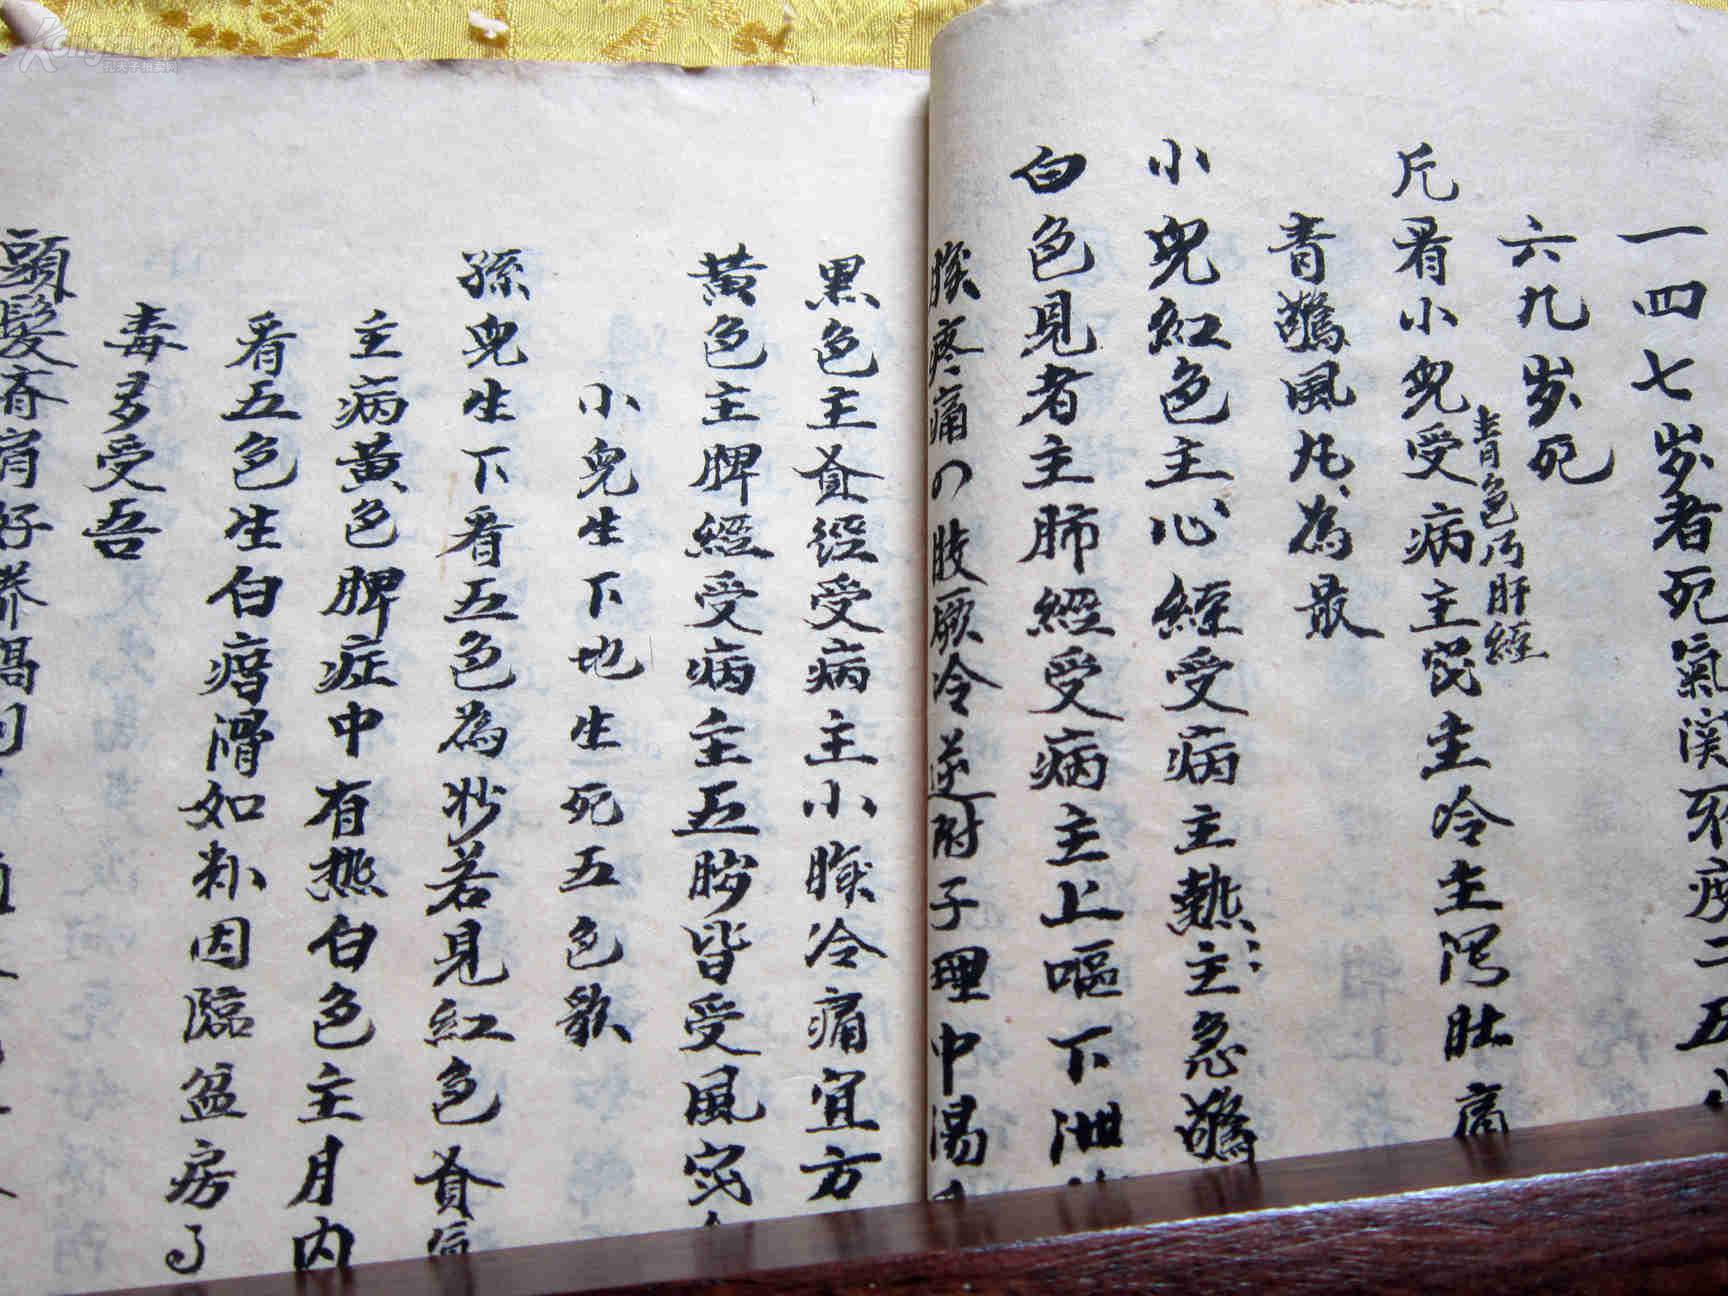 一四七岁者死氣渓不度二五
六九岁死
凡看小兒受病主宮主冷主瀉肚痛
青色乃肝經
青驚風凡為最
小兒紅色主心經受病主熱主急驚
白色見者主肺經受病主上嘔下泄
疼痛の肢厥冷逆附子理中湯
黑色主肾经受病主小腹冷痛宜方
黄色主脾經受病主五脏皆受風
小兒生下地生死五色歌
孫兒生下看五色為妙若見紅色
主病黄色脾症中有熱白色主月内
看五色生白瘡滑如粉因臨盆房了
毒多受吾
頭髮